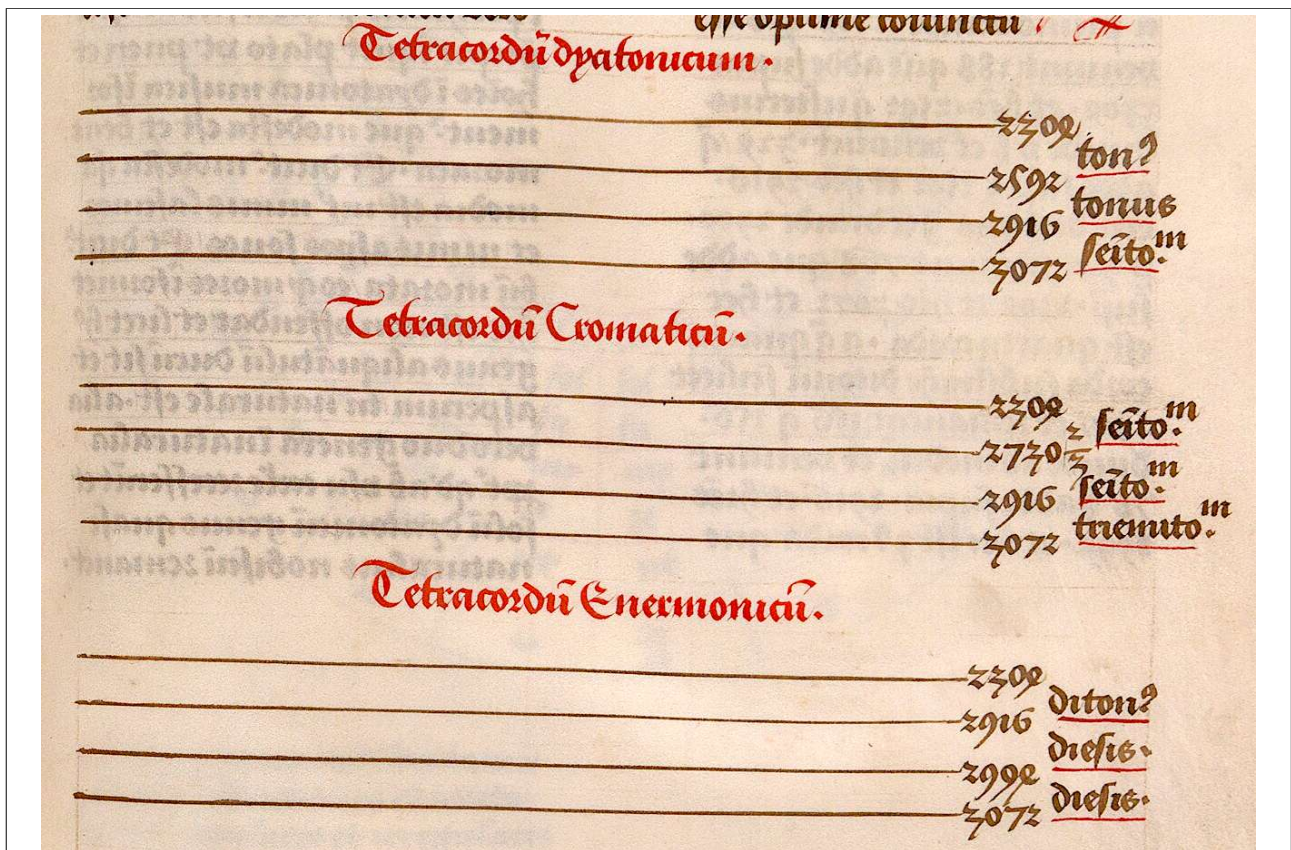 esse optime coniunctū .
Tetracordū dyatonicum.
2304
tonꝰ
2592
tonus
2916
seīto.m
3072
Tetracordū Cromaticū.
2304
seīto.m
2730 2/3
seīto.m
2916
triemito.m
3072
Tetracordū Enermonicū.
2304
ditonꝰ
2916
diesis.
2994
diesis.
3072